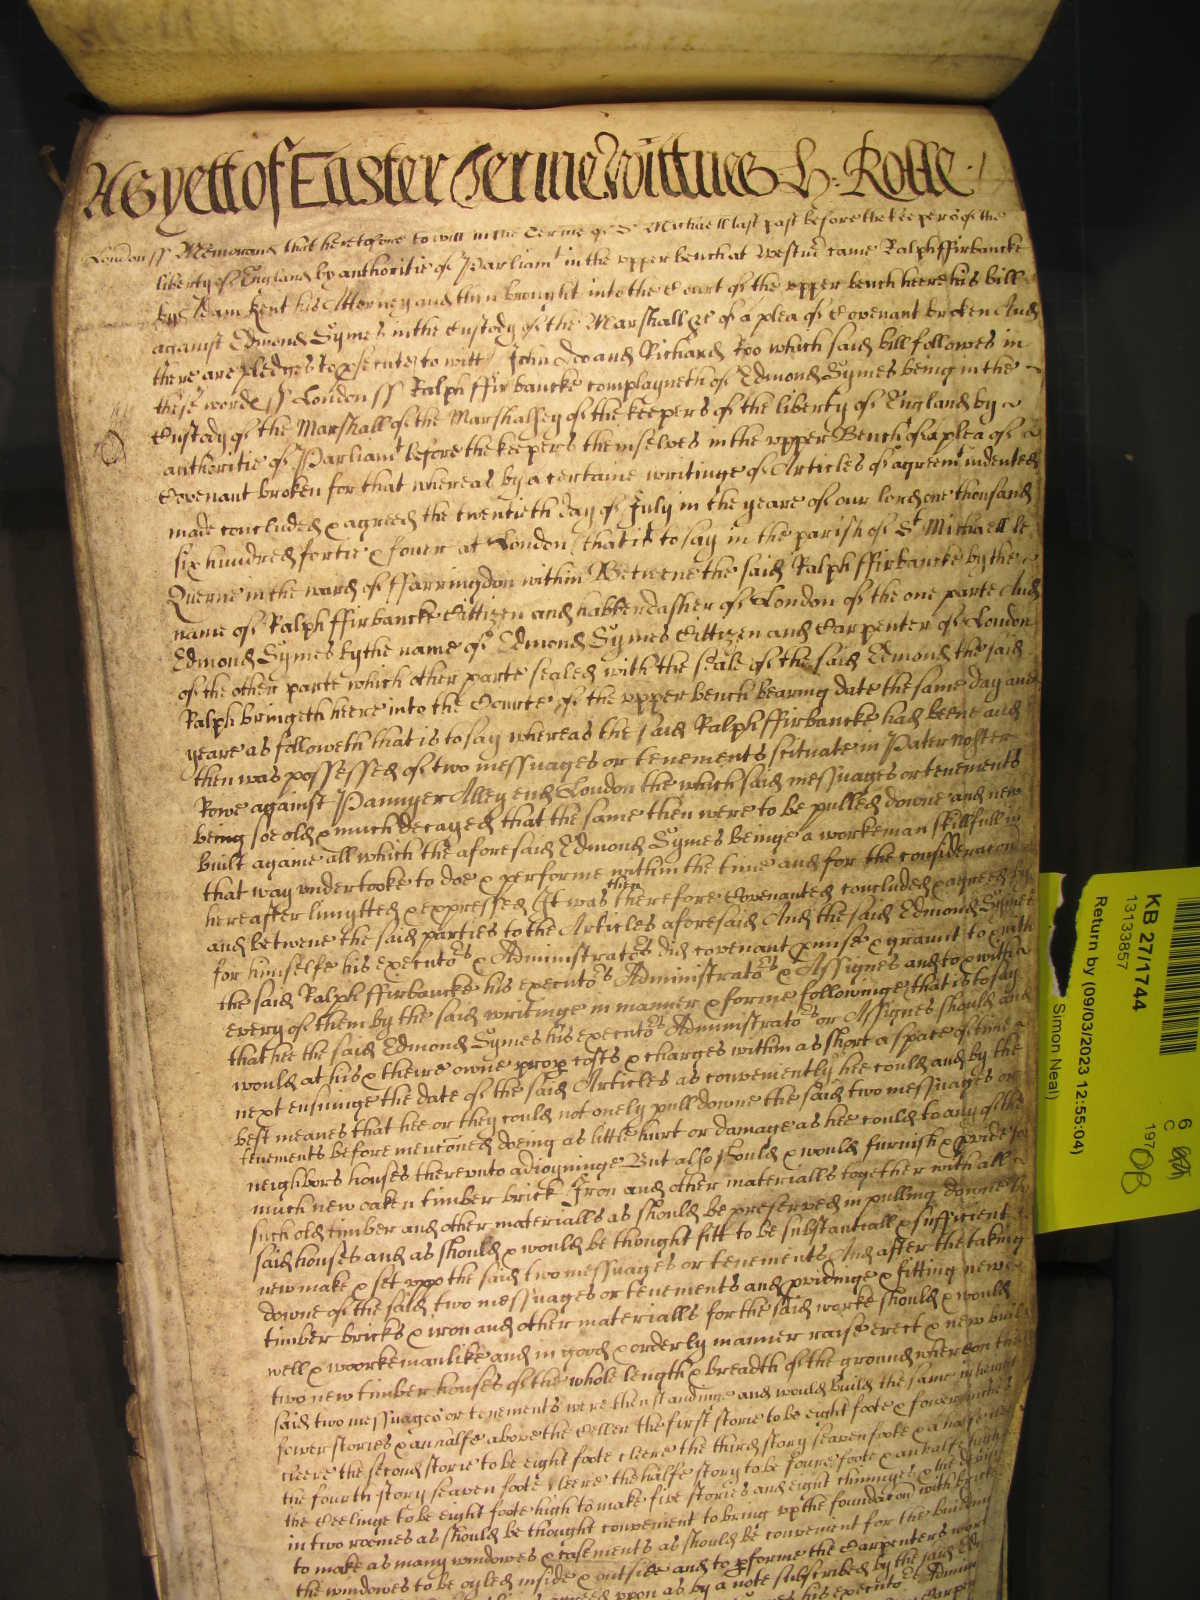 As yett of Easter Terme Wittnes H: Rolle
London ss Memorand that heretofore to witt in the Terme of St Michaell last past before the keepers of the
liberty of England by authoritie of Parliamt in the upper bench at Westmr came Ralph ffirbancke
by Adam Kent his Attorney and then brought into the Court of the upper bench heere his bill
against Edmond Symes in the Custody of the Marshall &c of a plea of Covenant broken And
there are pledges to psecute to witt John Doo and Richard Roo which said bill followes in
these words ss London ss Ralph ffirbancke complayneth of Edmond Symes being in the
Custody of the Marshall of the Marshalsey of the keepers of the liberty of England by
authoritie of Parliamt before the keepers themselves in the upper Bench of a plea of
Covenant broken for that whereas by a certaine writinge of Articles of agreemt indented
made concluded & agreed the twentieth day of July in the yeare of our lord one thousand
six hundred fortie & fower at London that is to say in the parish of St Michaell le
Querne in the ward of ffarringdon within Betweene the said Ralph ffirbancke by the
name of Ralph ffirbancke Cittizen and habberdasher of London of the one parte And
Edmond Symes by the name of Edmond Symes Cittizen and Carpenter of London
of the other parte which other parte sealed with the seale of the said Edmond the said
Ralph bringeth heere into the Courte of the upper bench bearing date the same day and
yeare as followeth that is to say whereas the said Ralph ffirbancke had beene and
then was possessed of two messuages or tenements scituate in Pater noster
Rowe against Pannyer Alley end London the which said messuages or tenements
being soe old & much decayed that the same then were to be pulled downe and new
built againe all which the aforesaid Edmond Symes beinge a workeman skillfull in
that way undertooke to doe & performe within the time and for the consideracon
hereafter lymytted & expressed It was then therefore Covenanted concluded & agreed by
and betwene the said parties to the Articles aforesaid And the said Edmond Symes
for himselfe his executors & Administrators did covenant pmise & graunt to & with
the said Ralph ffirbancke his executors Administrators & Assignes and to & with
every of them by the said writinge in manner & forme followinge that is to say
that hee the said Edmond Symes his executors Administrators or Assignes should and
would at his & theire owne propp costs & charges within as short a space of time
next ensuinge the date of the said Articles as conveniently hee could and by the
best meanes that hee or they could not onely pull downe the said two messuages or
tenements before menconed doeing as little hurt or damage as hee could to any of the
neighbors houses thereunto adioyninge But also should & would furnish & pvide soe
much new oaken timber brick Iron and other materialls together with all
such old timber and other materialls as should be preserved in pulling downe the
said houses and as should & would be thought fitt to be substantiall & sufficient
new make & set upp the said two messuages or tenements And after the taking
downe of the said two messuages or tenements and pvidinge & fitting new
timber bricks & iron and other materialls for the said worke should & would
well & woorkemanlike and in good & orderly manner raise erect & new build
two new timber houses of the whole length & breadth of the ground whereon the
said two messuages or tenements were then standinge and would build the same in height
fower stories & an halfe above the Celler the first storie to be eight foote & fower inches
cleere the second storie to be eight foote cleere the third story seaven foote & a halfe
the fourth story seaven foote cleere the halfe story to be foure foote & an halfe high
the Ceelinge to be eight foote high to make five stories and eight chimnyes
in two roomes as should be thought convenient to bring up the foundacon with bricke
to make as many windowes & casements as should be convenient for the building
the windowes to be oyled inside & outside and to pforme the Carpenters worke
upon as by a note subscribed by the said
his executors Admin
KB 27/1744
13133857
Return by (09/03/2023 12:55:04)
Simon Neal)
6
C
197